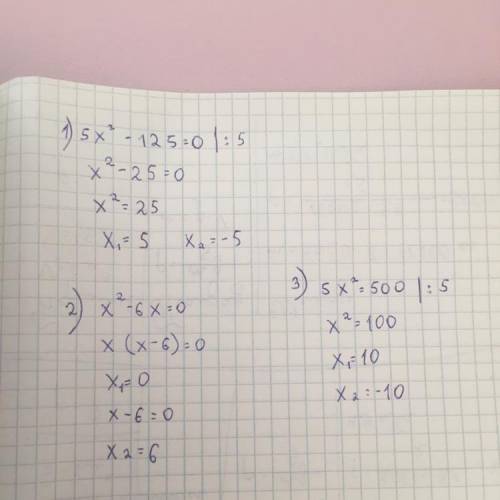 1) 5x² - 125 = 0 | : 5
x² - 25 = 0
x² = 25
x₁ = 5 x₂ = -5
2) x² - 6x = 0
x (x - 6) = 0
x₁ = 0
x - 6 = 0
x2 = 6
3) 5x² = 500 | : 5
x² = 100
x₁ = 10
x₂ = -10